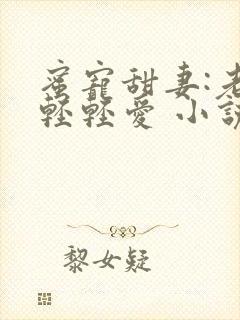 蜜寵甜妻:老
輕輕愛 小說
黎女疑